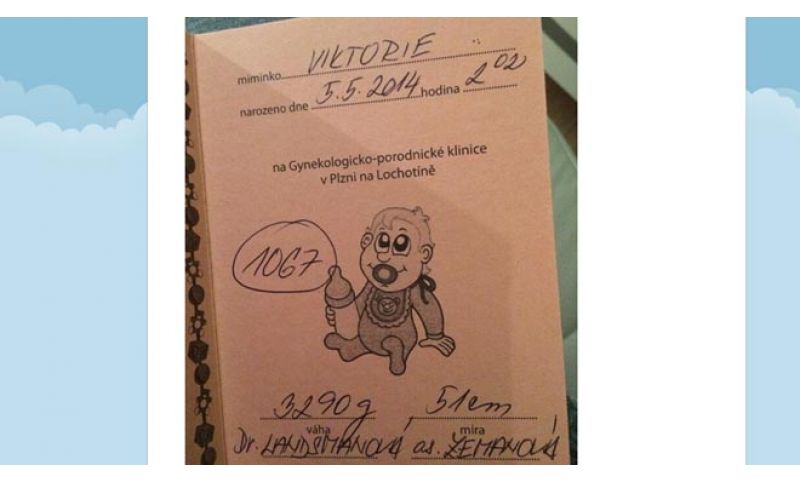 miminko VIKTORIE
narozeno dne 5.5.2014 hodina 2 02
na Gynekologicko-porodnické klinice
v Plzni na Lochotíně
1067
3290g 51cm
váha míra
Dr. LANDSMANOVÁ as. ZEMANOVÁ